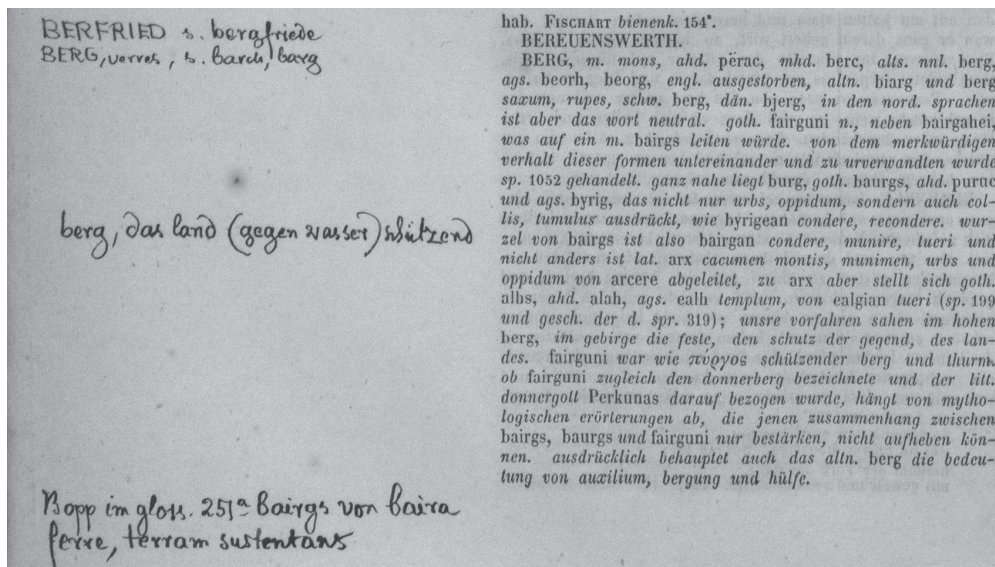 BERFRIED s. bergfriede
BERG, verres, s. barch, barg
berg, das land (gegen wasser) schützend
Bopp im gloss. 251a Bairgs von baira
ferre, terram sustentans
hab. FISCHART bienenk. 154a.
BEREUENSWERTH.
BERG, m. mons, ahd. përac, mhd. berc, alts. nnl. berg,
ags. beorh, beorg, engl. ausgestorben, altn. biarg und berg
saxum, rupes, schw. berg, dän. bjerg, in den nord. sprachen
ist aber das wort neutral. goth. fairguni n., neben bairgahei,
was auf ein m. bairgs leiten würde. von dem merkwürdigen
verhalt dieser formen untereinander und zu urverwandten wurde
sp. 1052 gehandelt. ganz nahe liegt burg, goth. baurgs, ahd. puruc
und ags. byrig, das nicht nur urbs, oppidum, sondern auch col-
lis, tumulus ausdrückt, wie byrigean condere, recondere. wur-
zel von bairgs ist also bairgan condere, munire, tueri und
nicht anders ist lat. arx cacumen montis, munimen, urbs und
oppidum von arcere abgeleitet, zu arx aber stellt sich goth.
alhs, ahd. alah, ags. ealh templum, von ealgian tueri (sp. 199
und gesch. der d. spr. 319); unsre vorfahren sahen im hohen
berg, im gebirge die feste, den schutz der gegend, des lan-
des. fairguni war wie πύργος schützender berg und thurm.
ob fairguni zugleich den donnerberg bezeichnete und der litt.
donnergott Perkunas darauf bezogen wurde, hängt von mytho-
logischen erörterungen ab, die jenen zusammenhang zwischen
bairgs, baurgs und fairguni nur bestärken, nicht aufheben kön-
nen. ausdrücklich behauptet auch das altn. berg die bedeu-
tung von auxilium, bergung und hülfe.